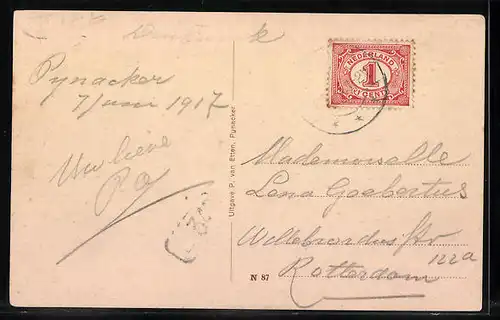 Pynacker
7/ 1917
Uw lieve
Pa
Uitgave P. van Etten, Pynacker.
N 87
NEDERLAND
1
1 CENT
Mademoiselle
Lena Goebertus
Willebrordusstr
122a
Rotterdam